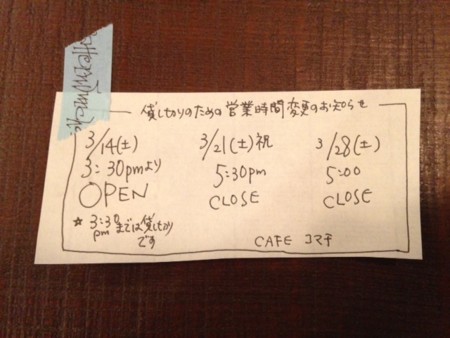 貸し切りのための営業時間変更のお知らせ
3/14(土)
3:30pmより
OPEN
☆3:30pmまでは貸し切り
です
3/21(土)祝
5:30pm
CLOSE
3/28(土)
5:00
CLOSE
CAFE コマチ